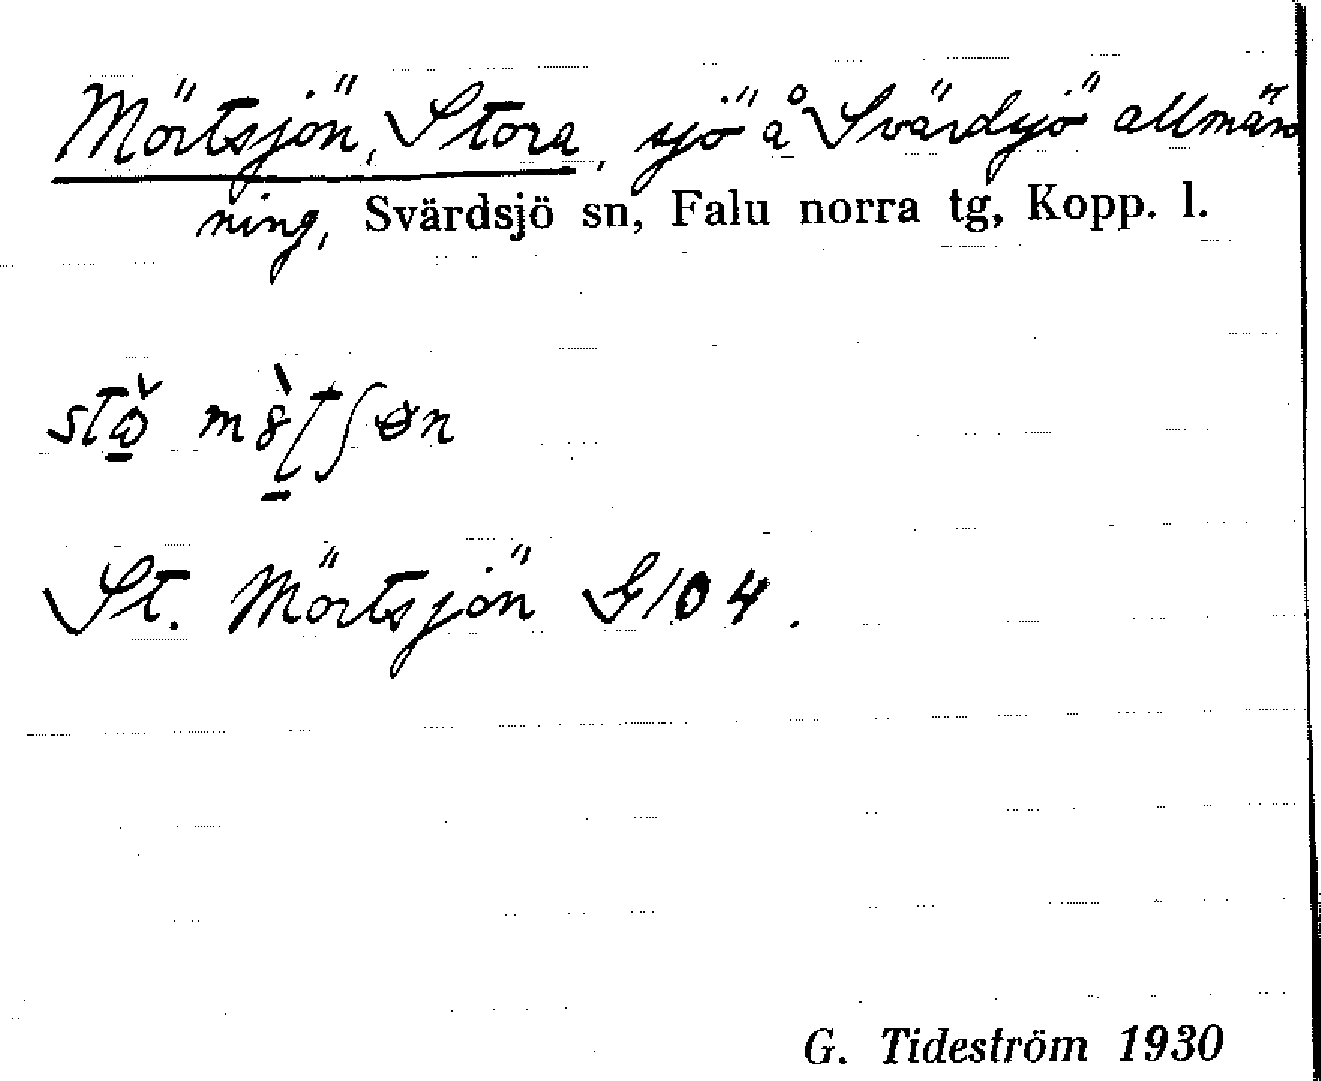 Mörtsjön, Stora, sjö å Svärdsjö allmän
ning, Svärdsjö sn, Falu norra tg, Kopp. l.
St. Mörtsjön G104.
G. Tideström 1930